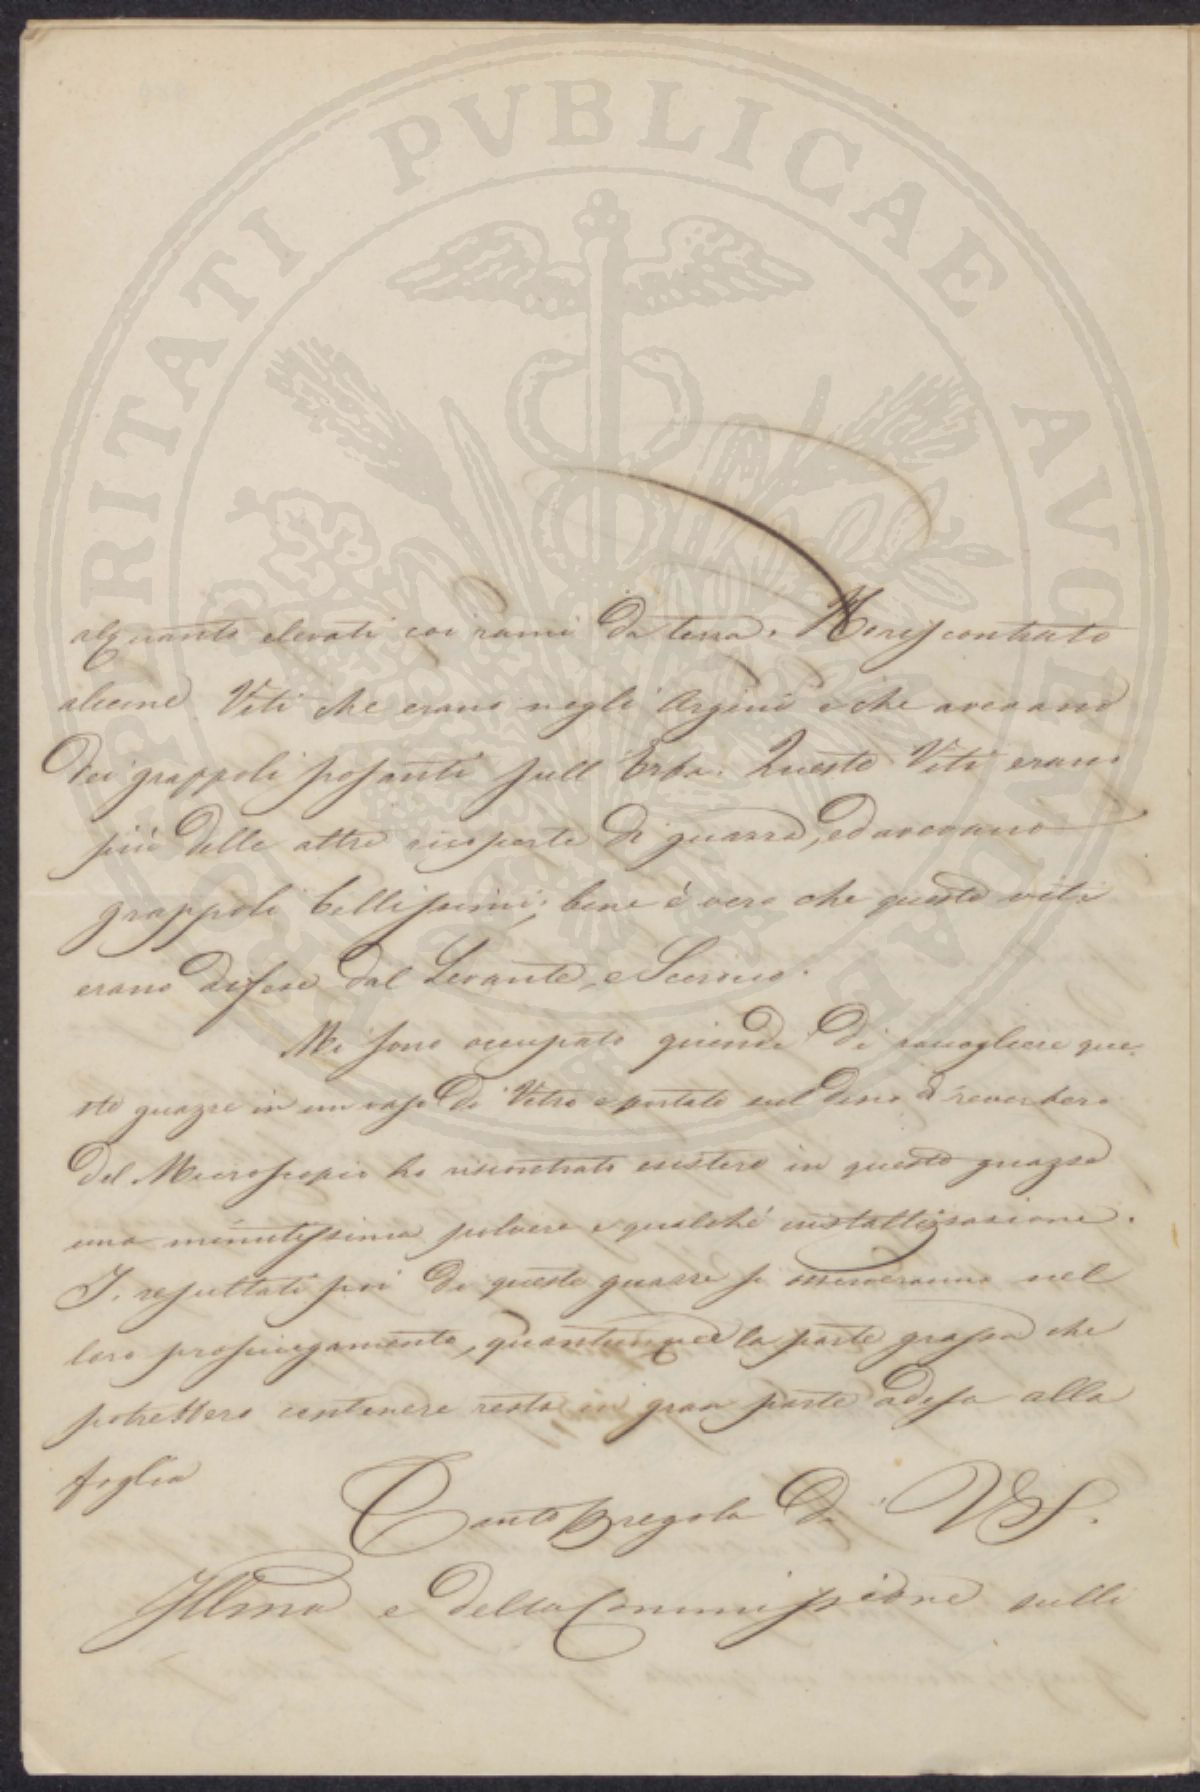 PROSPERITATI PVBLICAE AVGENDAE
alquanto elevati coi rami da terra. Ho riscontrato
alcune Viti che erano negli Argini e che avevano
dei grappoli posanti sull Erba. Queste Viti erano
più delle altre ricoperte di guazza, ed avevano
grappoli bellissimi; bene è vero che queste viti
erano difese dal Levante, e
Mi sono occupato quindi di raccogliere que-
ste guazze in un vaso di Vetro e portate sul di reverbero
del Microscopio ho riscontrato esistere in questa guazza
una minutissima polvere e qualche cristallizzazione.
I resultati poi di queste guazze si nel
loro prosciugamento, quantunque la parte grassa che
potrebbero contenere resta in gran parte adesa alla
foglia
Tanto di VS.
Illma e della Commissione sulle